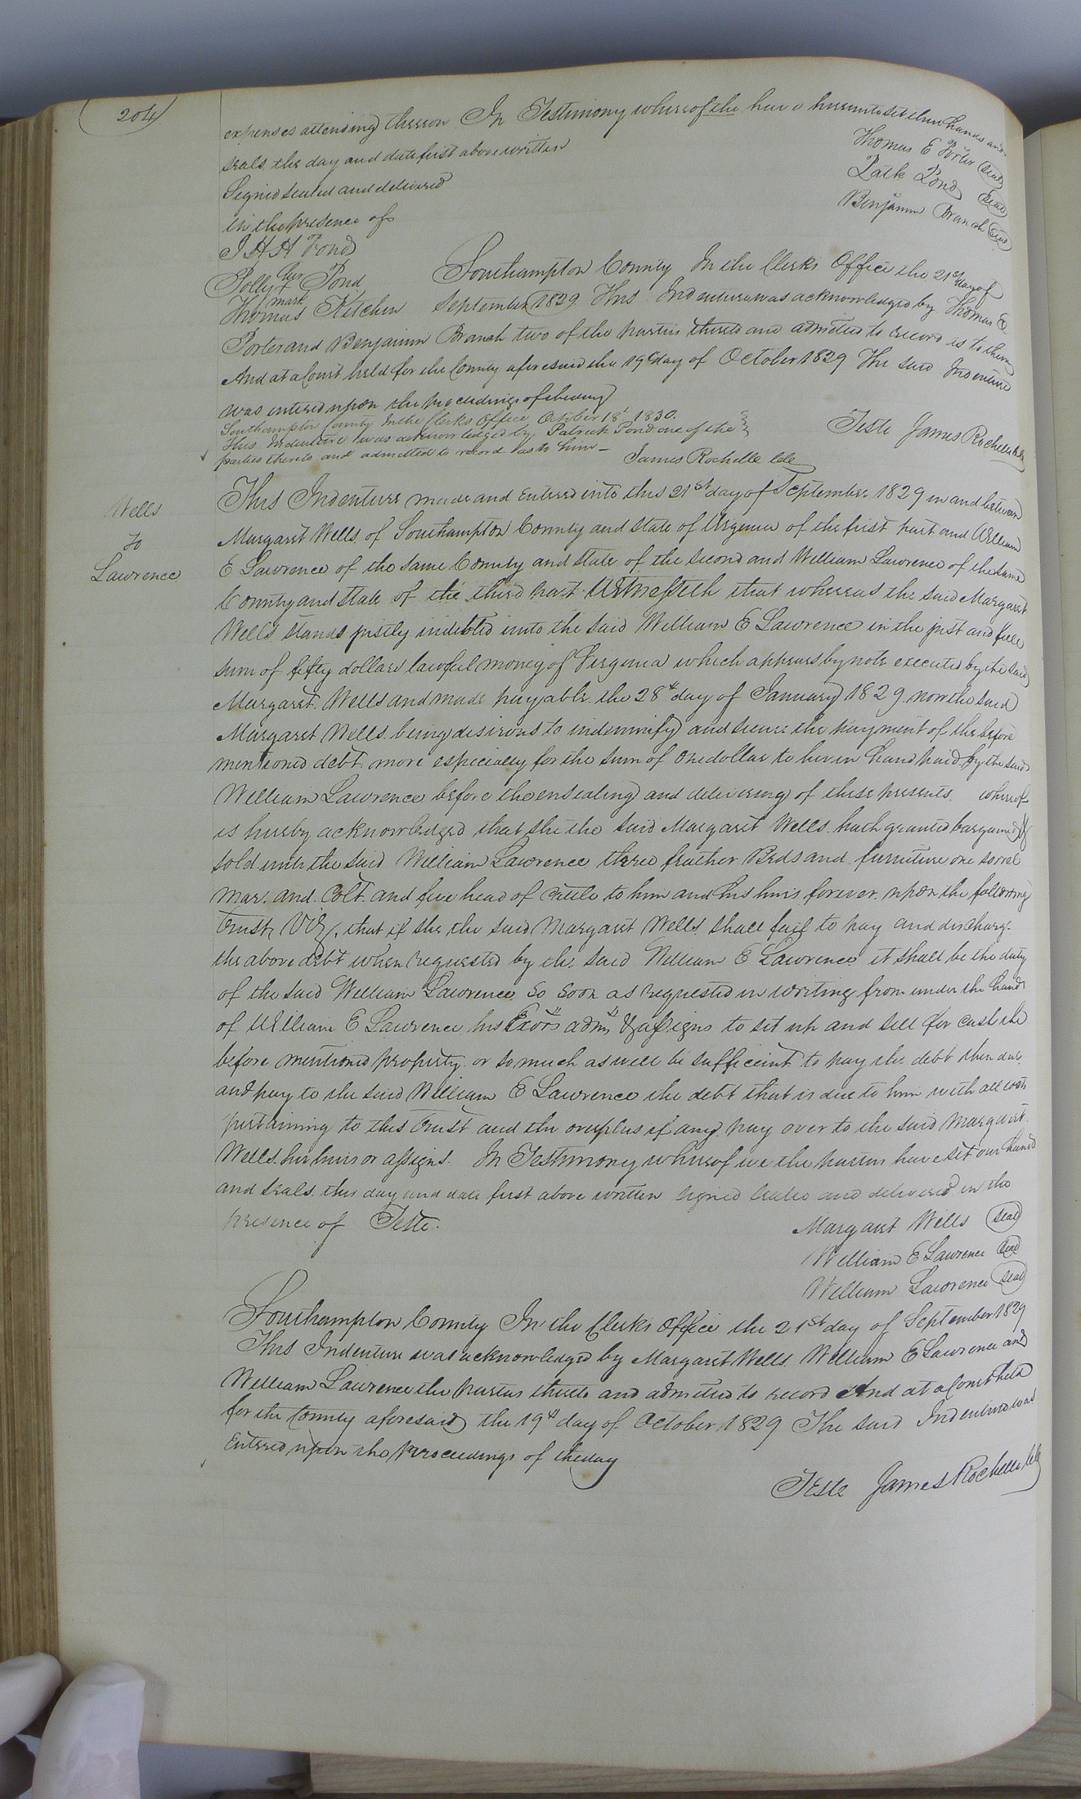 204
expenses attending thereon In Testimony whereof the have hereunto set their hands and
seals the day and date first above written
Thomas E Porter (seal)
Signed sealed and delivered
Patk Pond (seal)
in the presence of
Benjamin Branch (seal)
J H H Pond
Polly her Pond
mark
Thomas Kitchen
Southampton County In the Clerks Office the 21st day of
September 1829 This Indenture was acknowledged by Thomas E
Porter and Benjamin Branch two of the parties thereto and admitted to record as to them
And at a Court held for the County aforesaid the 19th day of October 1829 The said Indenture
was entered upon the proceedings of the day
Teste James Rochelle Clk
Southampton County In the Clerks Office October 18t 1830.
This Indenture was acknowledged by Patrick Pond one of the
parties thereto and admitted to record as to him —
James Rochelle Clk
Wells
to
Lawrence
This Indenture made and entered into this 21st day of September 1829 in and between
Margaret Wells of Southampton County and state of Virginia of the first part and William
E Lawrence of the same County and state of the second and William Lawrence of the same
County and state of the third part Witnesseth that whereas the said Margaret
Wells stands justly indebted unto the said William E Lawrence in the just and full
sum of fifty dollars lawful money of Virginia which appears by note executed by the said
Margaret Wells and made payable the 28th day of January 1829 now the said
Margaret Wells being desirous to indemnify and secure the payment of the before
mentioned debt more especially for the sum of one dollar to her in hand paid by the said
William Lawrence before the ensealing and delivering of these presents whereof
is hereby acknowledged that she the said Margaret Wells hath granted bargained &
sold unto the said William Lawrence three feather Beds and furniture one sorrel
mare and Colt and five head of cattle to him and his heirs forever upon the following
Trust, Viz, that if she the said Margaret Wells shall fail to pay and discharge
the above debt when requested by the said William E Lawrence it shall be the duty
of the said William Lawrence so soon as requested in writing from under the hand
of William E Lawrence his Exors adms & assigns to set up and sell for cash the
before mentioned property or so much as will be sufficient to pay the debt then due
and pay to the said William E Lawrence the debt that is due to him with all costs
pertaining to this Trust and the overplus if any pay over to the said Margaret
Wells her heirs or assigns. In Testimony whereof we the parties have set our hand
and seals this day and date first above written Signed sealed and delivered in the
presence of Teste.
Margaret Wells (seal)
William E Lawrence (seal)
William Lawrence (seal)
Southampton County In the Clerks Office the 21st day of September 1829
This Indenture was acknowledged by Margaret Wells William E Lawrence and
William Lawrence the parties thereto and admitted to record And at a Court held
for the County aforesaid the 19th day of October 1829 The said Indenture was
Entered upon the proceedings of the day
Teste James Rochelle Clk